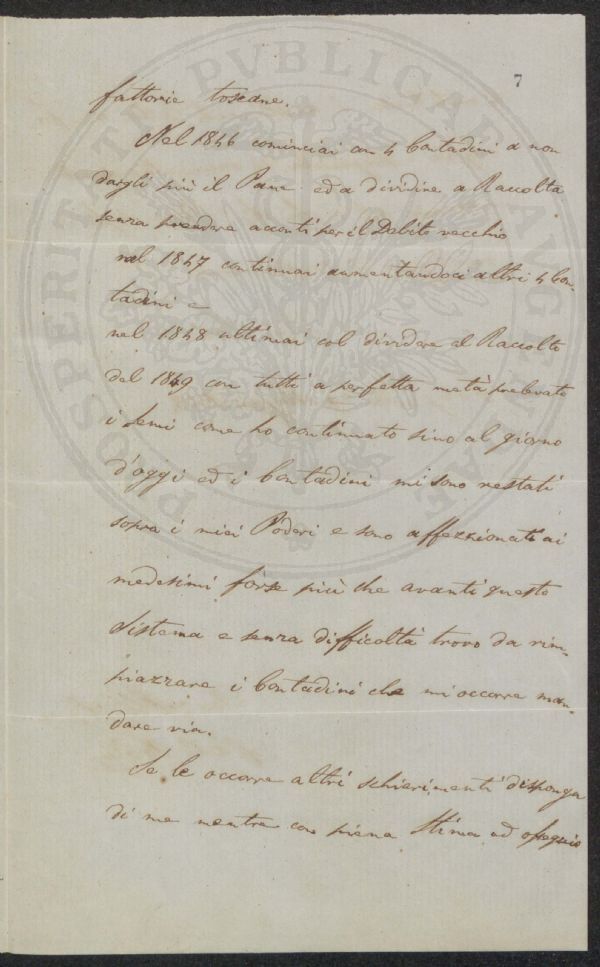 7
fattorie toscane.
Nel 1846 cominciai con 4 Contadini a non
dargli più il Pane ed a dividere a Raccolta
senza prendere aconti per il Debito vecchio
nel 1847 continuai aumentandoci altri 4 Con-
tadini e
nel 1848 ultimai col dividere al Raccolto
del 1849 con tutti a perfetta metà prelevato
i Semi come ho continuato sino al giorno
d'oggi ed i Contadini mi sono restati
sopra i miei Poderi e sono affezzionati ai
medesimi forse più che avanti questo
Sistema e senza difficoltà trovo da rim-
piazzare i Contadini che mi occorre man-
dare via.
Se le occorre altri schierimenti disponga
di me mentre con piena Stima ed ossequio
PROSPERITATI PVBLICAE AVGENDAE